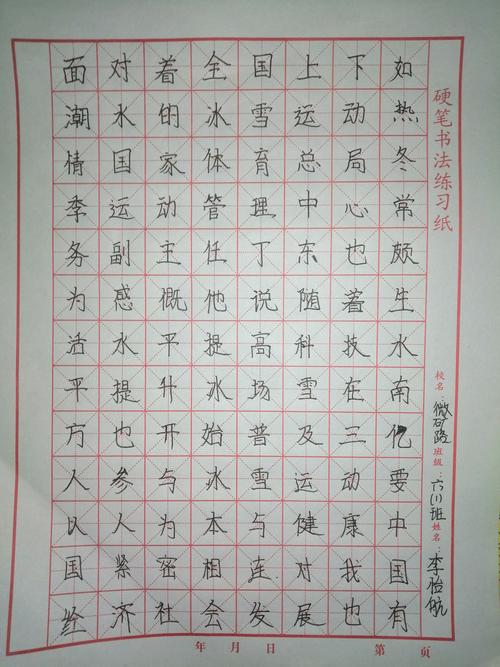 面对着全国上下如
潮水的冰雪运动热
情国家体育总局冬
季运动管理中心常
务副主任丁东也颇
为感慨他说随着生
活水平提高科技水
平提升冰场雪在南
方也开始普及三亿
人参与冰雪运动要
以人为本与健康中
国紧密相连对我国
经济社会发展也有
硬笔书法练习纸
校名:微矿路 班级:六(1)班 姓名:李怡航
年 月 日 第 页